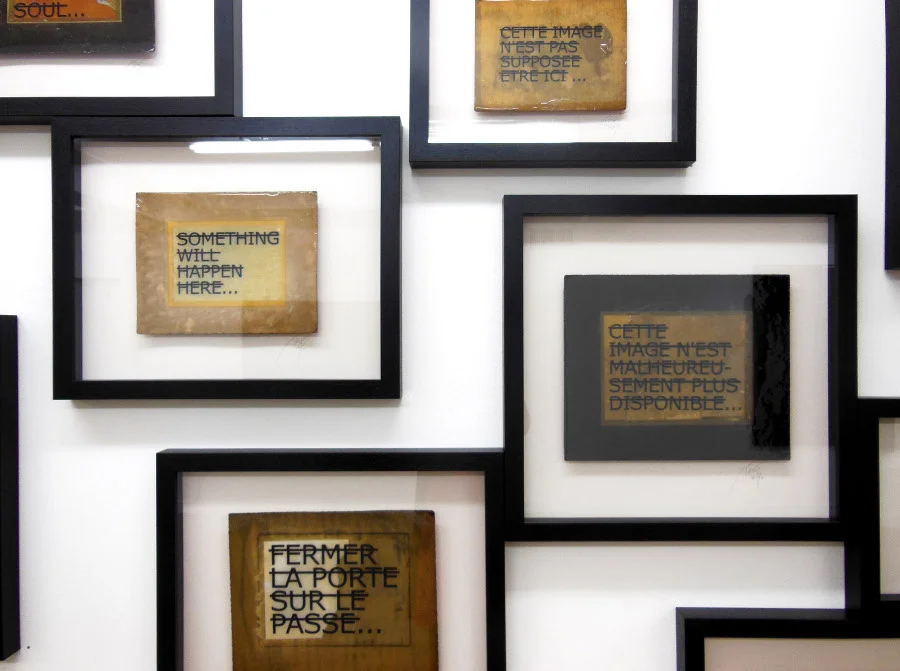 SOUL...
CETTE IMAGE
N'EST PAS
SUPPOSEE
ETRE ICI ...
SOMETHING
WILL
HAPPEN
HERE...
CETTE
IMAGE N'EST
MALHEUREU-
SEMENT PLUS
DISPONIBLE...
FERMER
LA PORTE
SUR LE
PASSE...